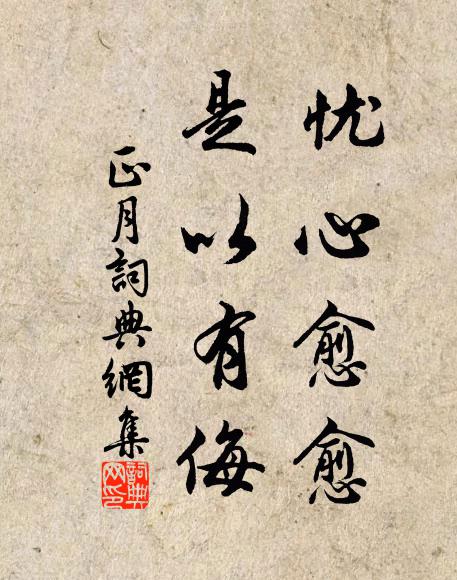 忧心愈愈
是以有侮
正月詞典網集
詞典网印